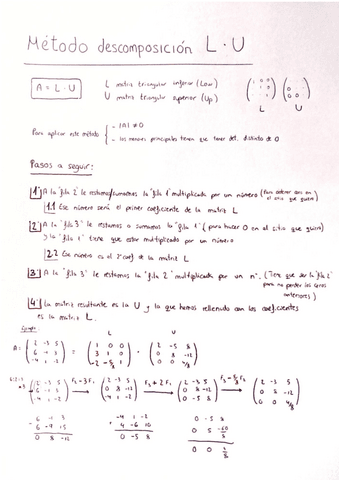 Método descomposición L·U
A = L·U
L matriz triangular inferior (Low)
U matriz triangular superior (Up)
L U
Para aplicar este método
- |A| ≠ 0
- los menores principales tienen que tener det. distinto de 0
Pasos a seguir:
1º A la "fila 2" le restamos/sumamos la "fila 1" multiplicada por un número (para obtener cero en el sitio que quiero)
1.1 Ese número será el primer coeficiente de la matriz L
2º A la "fila 3" le restamos o sumamos la "fila 1" (para hacer 0 en el sitio que quiero)
y la "fila 1" tiene que estar multiplicada por un número
2.2 Ese número es el 2º coef de la matriz L
3º A la "fila 3" le restamos la "fila 2" multiplicada por un nº. (Tiene que ser la "fila 2" para no perder los ceros anteriores)
4º La matriz resultante es la U y la que hemos rellenado con los coeficientes
es la matriz L.
L U
A = (2 -3 5 = (1 0 0 · (2 -3 5
3 1 0 0 8 -12
-4 1 -2) -2 -5/8 1) 0 0 4/8)
F2-3F1 F3+2F1
2 -3 5
0 8 -12
0 -5 8
-4 1 -2
4 -6 10
0 -5 8
0 -5 8
0 8 -12